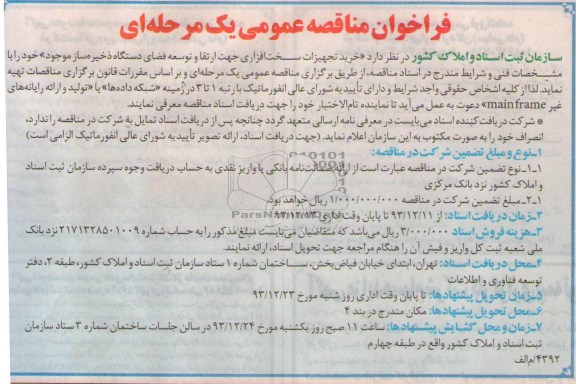 فراخوان مناقصه عمومی یک مرحله‌ای
سازمان ثبت اسناد و املاک کشور در نظر دارد «خرید تجهیزات سخت‌افزاری جهت ارتقا و توسعه فضای دستگاه ذخیره‌ساز موجود» خود را با
مشخصات فنی و شرایط مندرج در اسناد مناقصه، از طریق برگزاری مناقصه عمومی یک مرحله‌ای و بر اساس مقررات قانون برگزاری مناقصات تهیه
نماید. لذا از کلیه اشخاص حقوقی واجد شرایط و دارای تأییدیه شورای عالی انفورماتیک با رتبه ۱ تا ۳ در زمینه «شبکه داده‌ها» یا «تولید و ارائه رایانه‌های
غیر mainframe» دعوت به عمل می‌آید تا نماینده تام‌الاختیار خود را جهت دریافت اسناد مناقصه معرفی نمایند.
* شرکت دریافت کننده اسناد می‌بایست در معرفی نامه ارسالی متعهد گردد چنانچه پس از دریافت اسناد تمایل به شرکت در مناقصه را ندارد،
انصراف خود را به صورت مکتوب به این سازمان اعلام نماید. (جهت دریافت اسناد، ارائه تصویر تأییدیه شورای عالی انفورماتیک الزامی است)
۱ـ نوع و مبلغ تضمین شرکت در مناقصه:
۱ـ۱ـ نوع تضمین شرکت در مناقصه عبارت است از ارائه ضمانت‌نامه بانکی یا واریز نقدی به حساب دریافت وجوه سپرده سازمان ثبت اسناد
و املاک کشور نزد بانک مرکزی
۱ـ۲ـ مبلغ تضمین شرکت در مناقصه ۱/۰۰۰/۰۰۰/۰۰۰ ریال خواهد بود.
۲ـ زمان دریافت اسناد: از ۹۳/۱۲/۱۱ تا پایان وقت اداری ۹۳/۱۲/۱۳
۳ـ هزینه فروش اسناد ۲/۰۰۰/۰۰۰ ریال می‌باشد که متقاضیان می‌بایست مبلغ مذکور را به حساب شماره ۲۱۷۱۳۲۸۵۰۱۰۰۹ نزد بانک
ملی شعبه ثبت کل واریز و فیش آن را هنگام مراجعه جهت تحویل اسناد، ارائه نمایند.
۴ـ محل دریافت اسناد: تهران، ابتدای خیابان فیاض‌بخش، ساختمان شماره ۱ ستاد سازمان ثبت اسناد و املاک کشور، طبقه ۳، دفتر
توسعه فناوری و اطلاعات
۵ـ زمان تحویل پیشنهادها: تا پایان وقت اداری روز شنبه مورخ ۹۳/۱۲/۲۳
۶ـ محل تحویل پیشنهادها: مکان مندرج در بند ۴
۷ـ زمان و محل گشایش پیشنهادها: ساعت ۱۱ صبح روز یکشنبه مورخ ۹۳/۱۲/۲۴ در سالن جلسات ساختمان شماره ۳ ستاد سازمان
ثبت اسناد و املاک کشور واقع در طبقه چهارم
۴۳۹۲/م‌الف